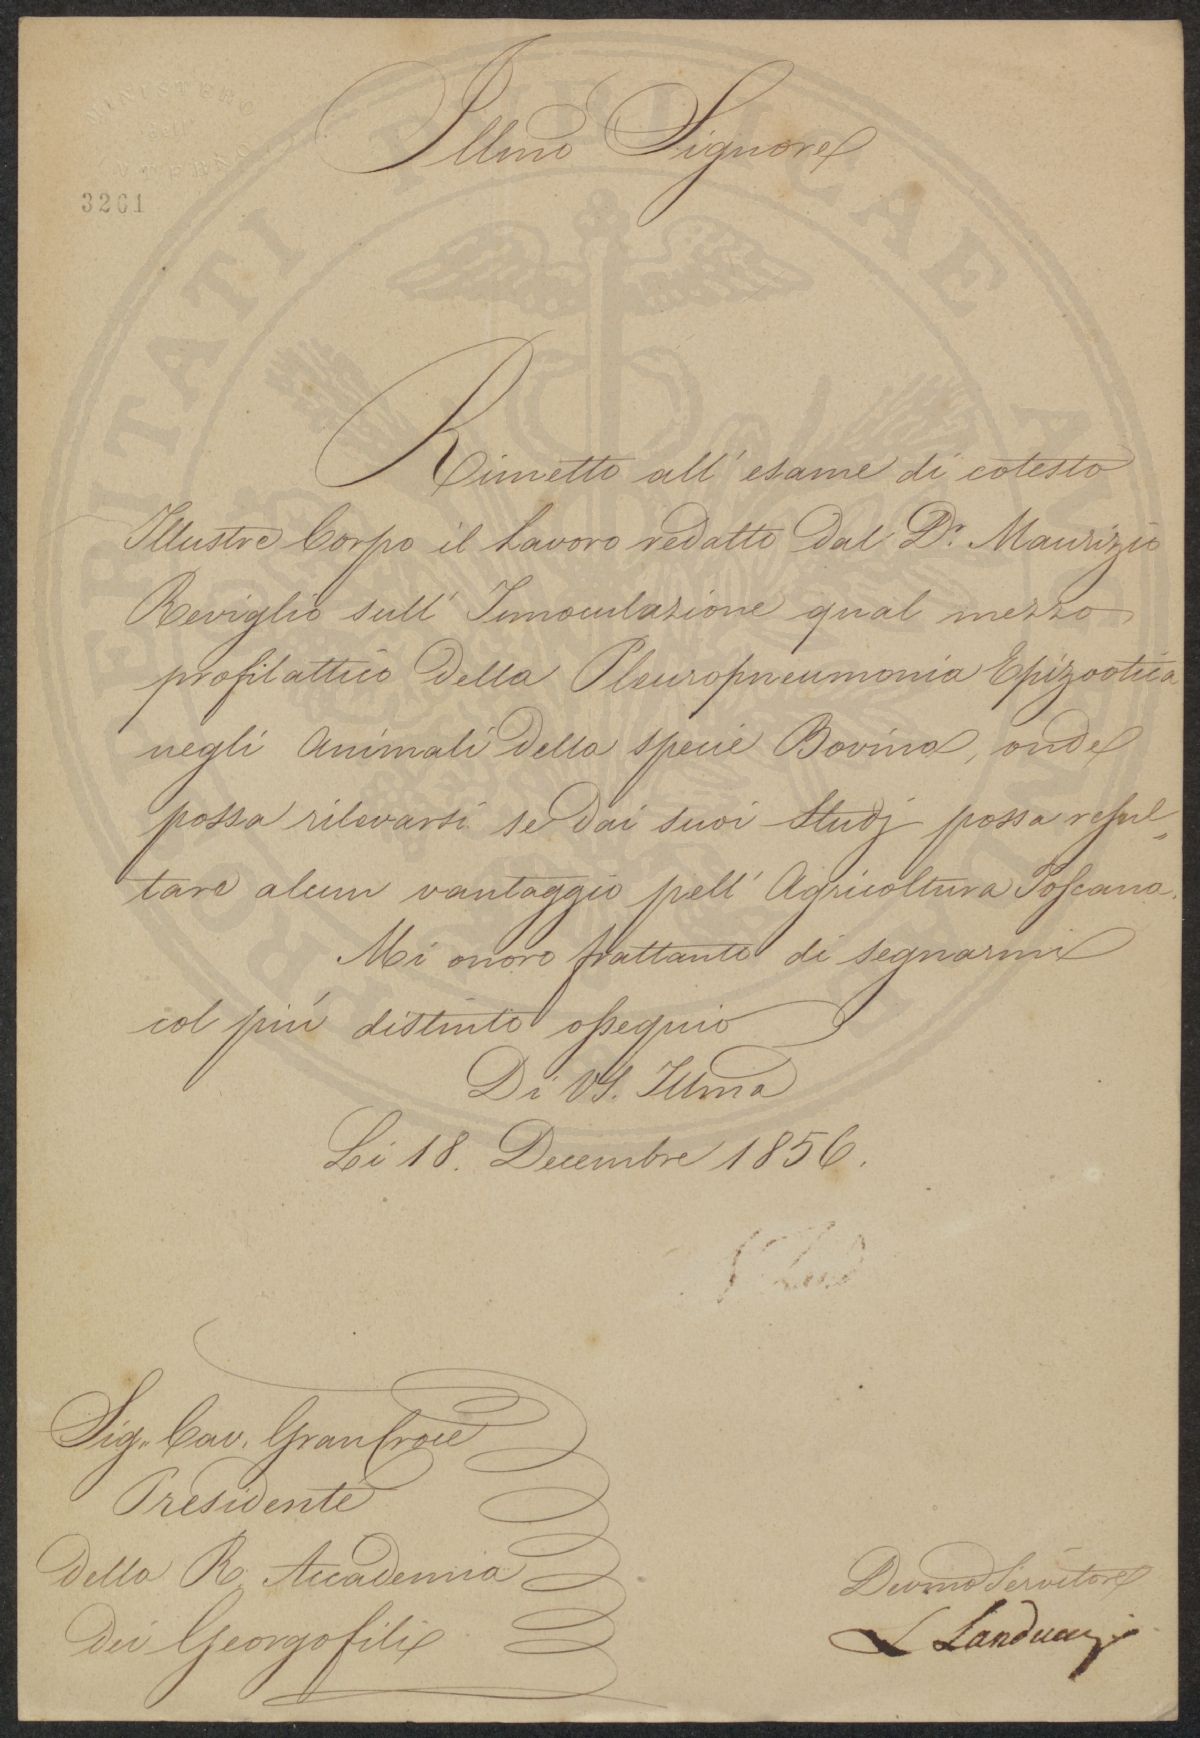 Illmo Signore
MINISTERO
3261
PROSPERITATI PUBLICAE AUGENDAE
Rimetto all' esame di cotesto
Illustre Corpo il Lavoro redatto dal Dr. Maurizio
Reviglio sull' Innoculazione qual mezzo
profilattico della Pleuropneumonia Epizootica
negli Animali della specie Bovina, onde
possa rilevarsi se dai suoi Studj possa resul-
tare alcun vantaggio pell' Agricoltura Toscana.
Mi onoro frattanto di segnarmi
col piú distinto ossequio
Di VS. Illma
Li 18. Decembre 1856.
Sig. Cav. GranCroce
Presidente
della R. Accademia
dei Georgofili
Devmo Servitore
L Landucci